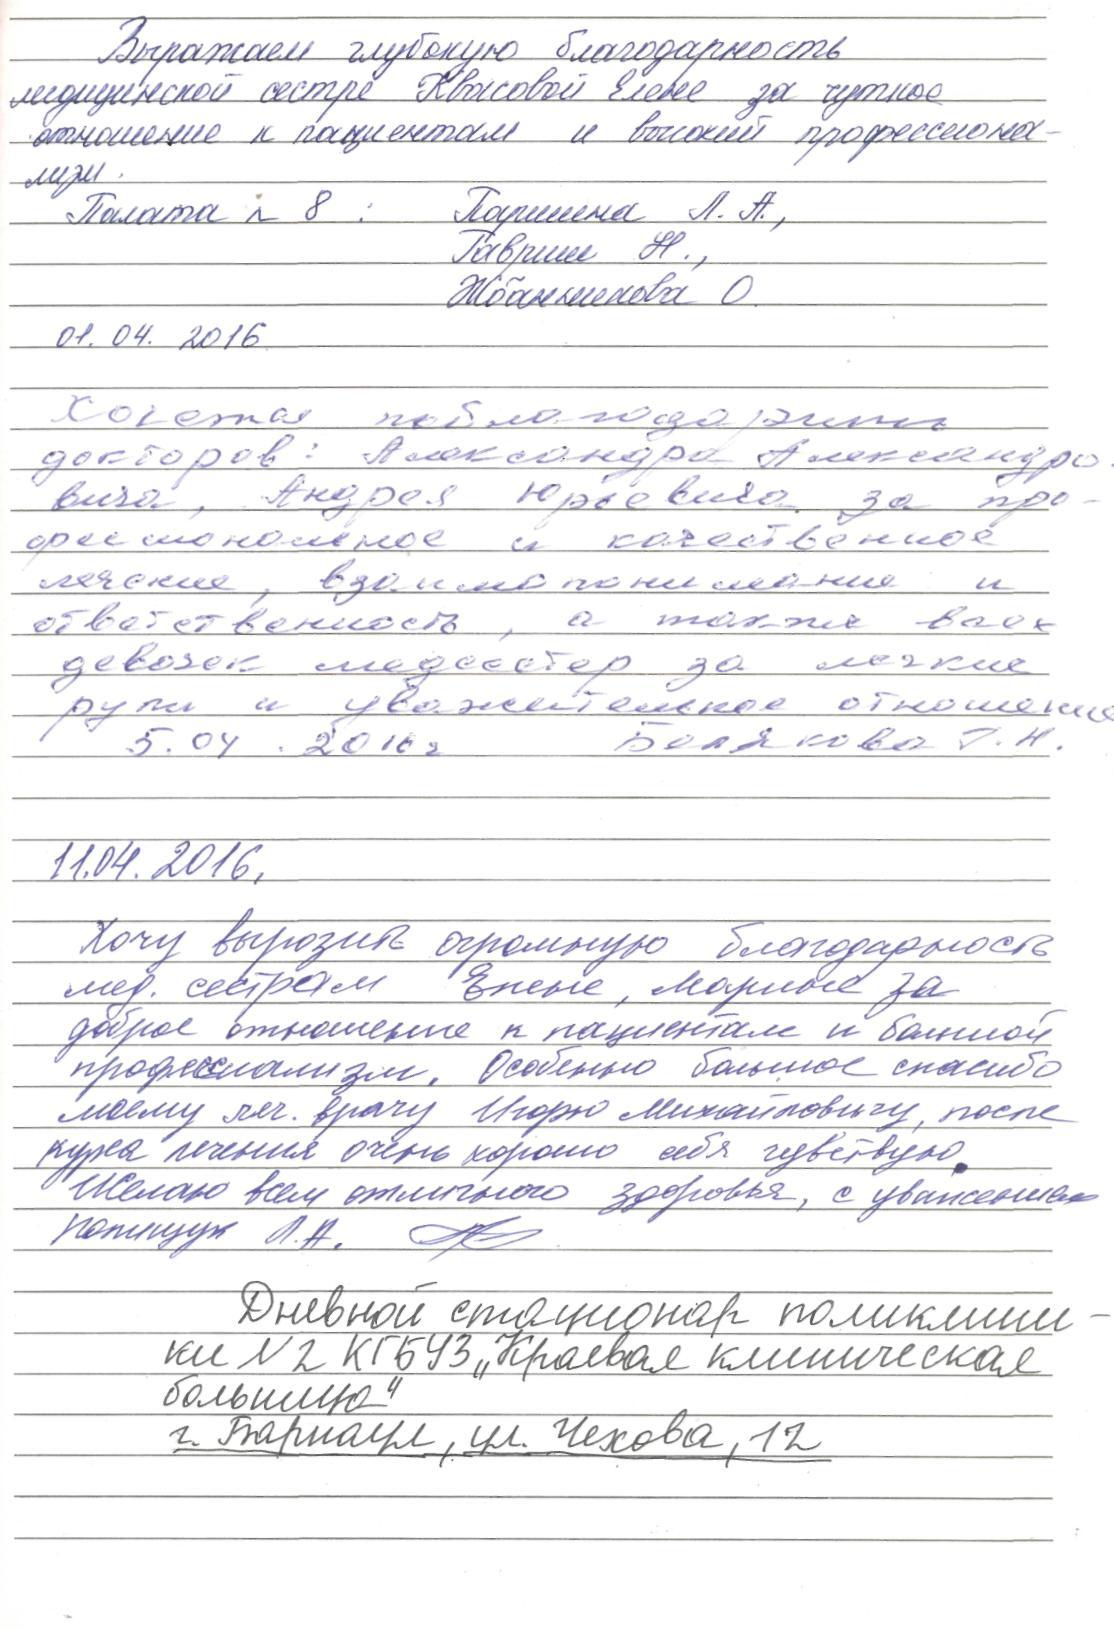 Выражаем глубокую благодарность
медицинской сестре Квасовой Елене за чуткое
отношение к пациентам и высокий профессиона-
лизм.
Палата № 8 : Паршина Л. А.,
Гавриш Н.,
Жбанникова О.
01. 04. 2016
Хочется поблагодарить
докторов: Александра Александро-
вича, Андрея Юрьевича за про-
фессиональное и качественное
лечение, взаимопонимание и
ответственность, а также всех
девочек медсестер за легкие
руки и уважительное отношение
5.04.2016г Белякова Г.Н.
11.04.2016.
Хочу выразить огромную благодарность
мед. сестрам Елене, Марине за
доброе отношение к пациентам и большой
профессиализм. Особенно большое спасибо
моему леч. врачу Игорю Михайловичу, после
курса лечения очень хорошо себя чувствую.
Желаю всем отличного здоровья, с уважением
Л.А.
Дневной стационар поликлини-
ки №2 КГБУЗ „Краевая клиническая
больница"
г. Барнаул, ул. Чехова, 12